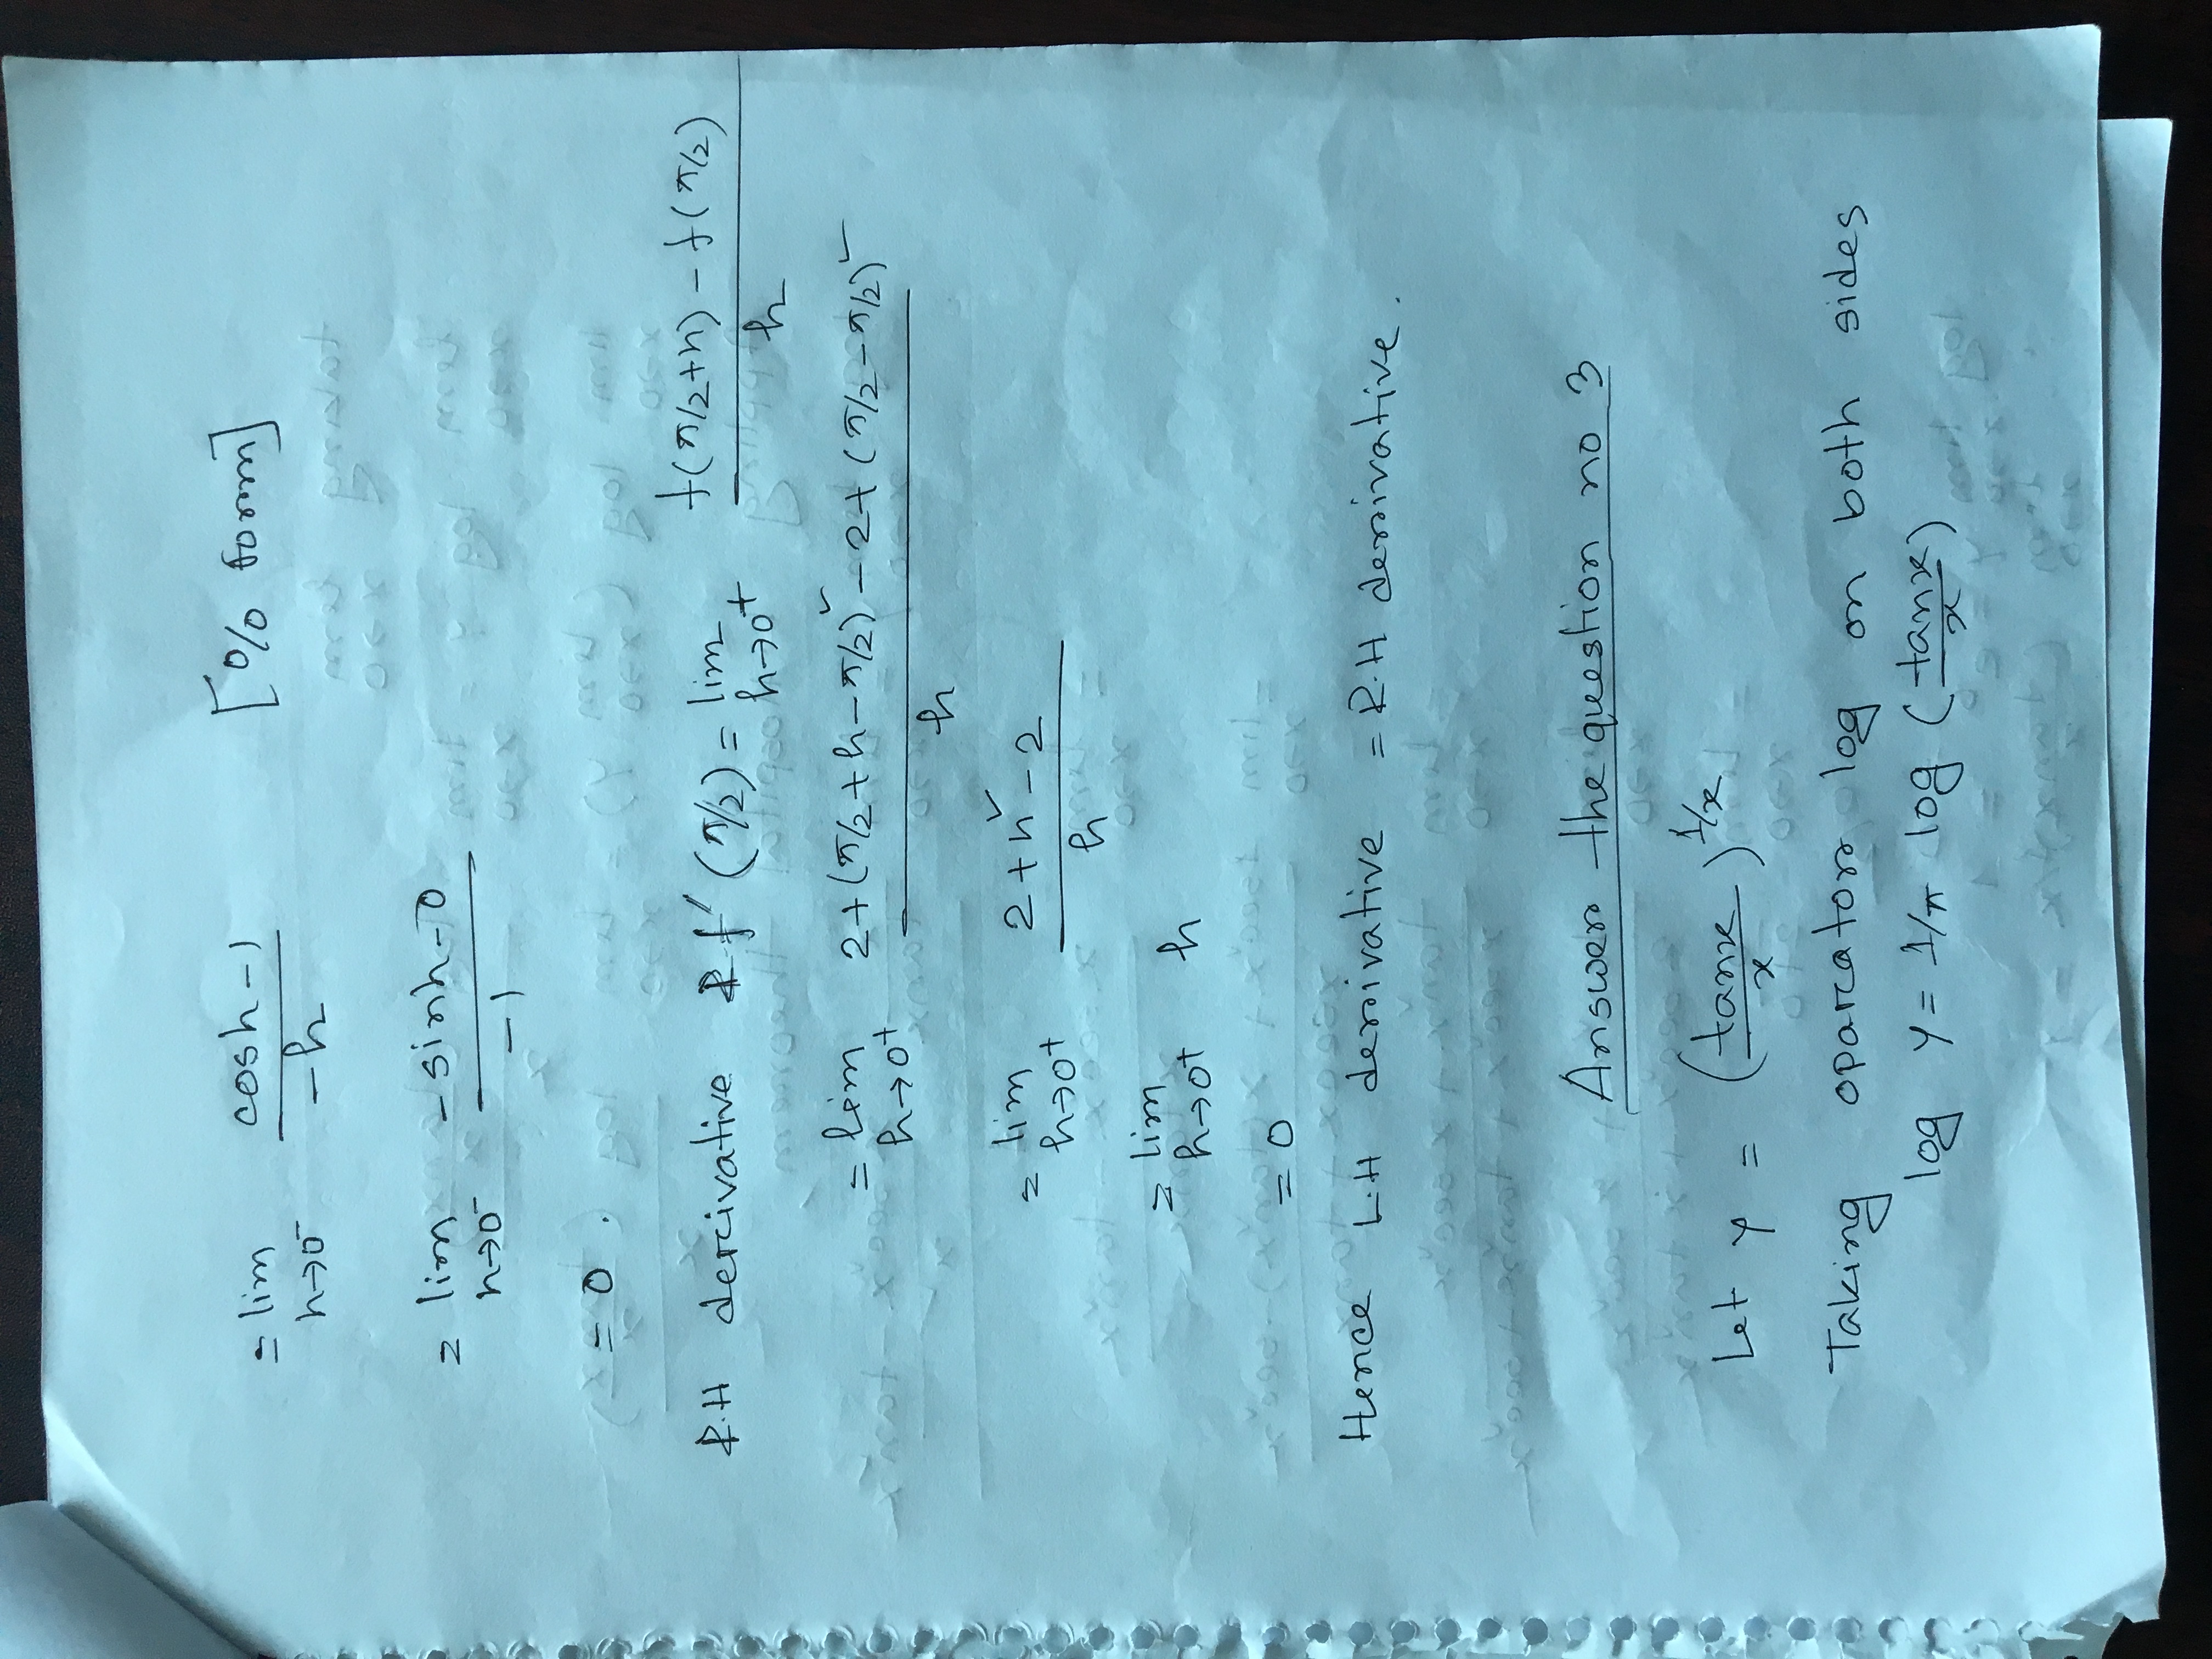 = lim h→0⁻ (cosh-1)/(-h) [0/0 form]
= lim h→0⁻ (-sinh-0)/(-1)
= 0.
R.H dercivative R f′ (π/2) = lim h→0+ (f(π/2+h) - f(π/2))/h
= lim h→0+ (2+(π/2+h-π/2)² - 2+(π/2-π/2)²)/h
= lim h→0+ (2+h²-2)/h
= lim h→0+ h
= 0
Hence L.H derivative = R.H derivative.
Answer the question no 3
Let y = (tanx/x)^1/x
Taking oparcator log on both sides
log y = 1/π log (tanx/x)